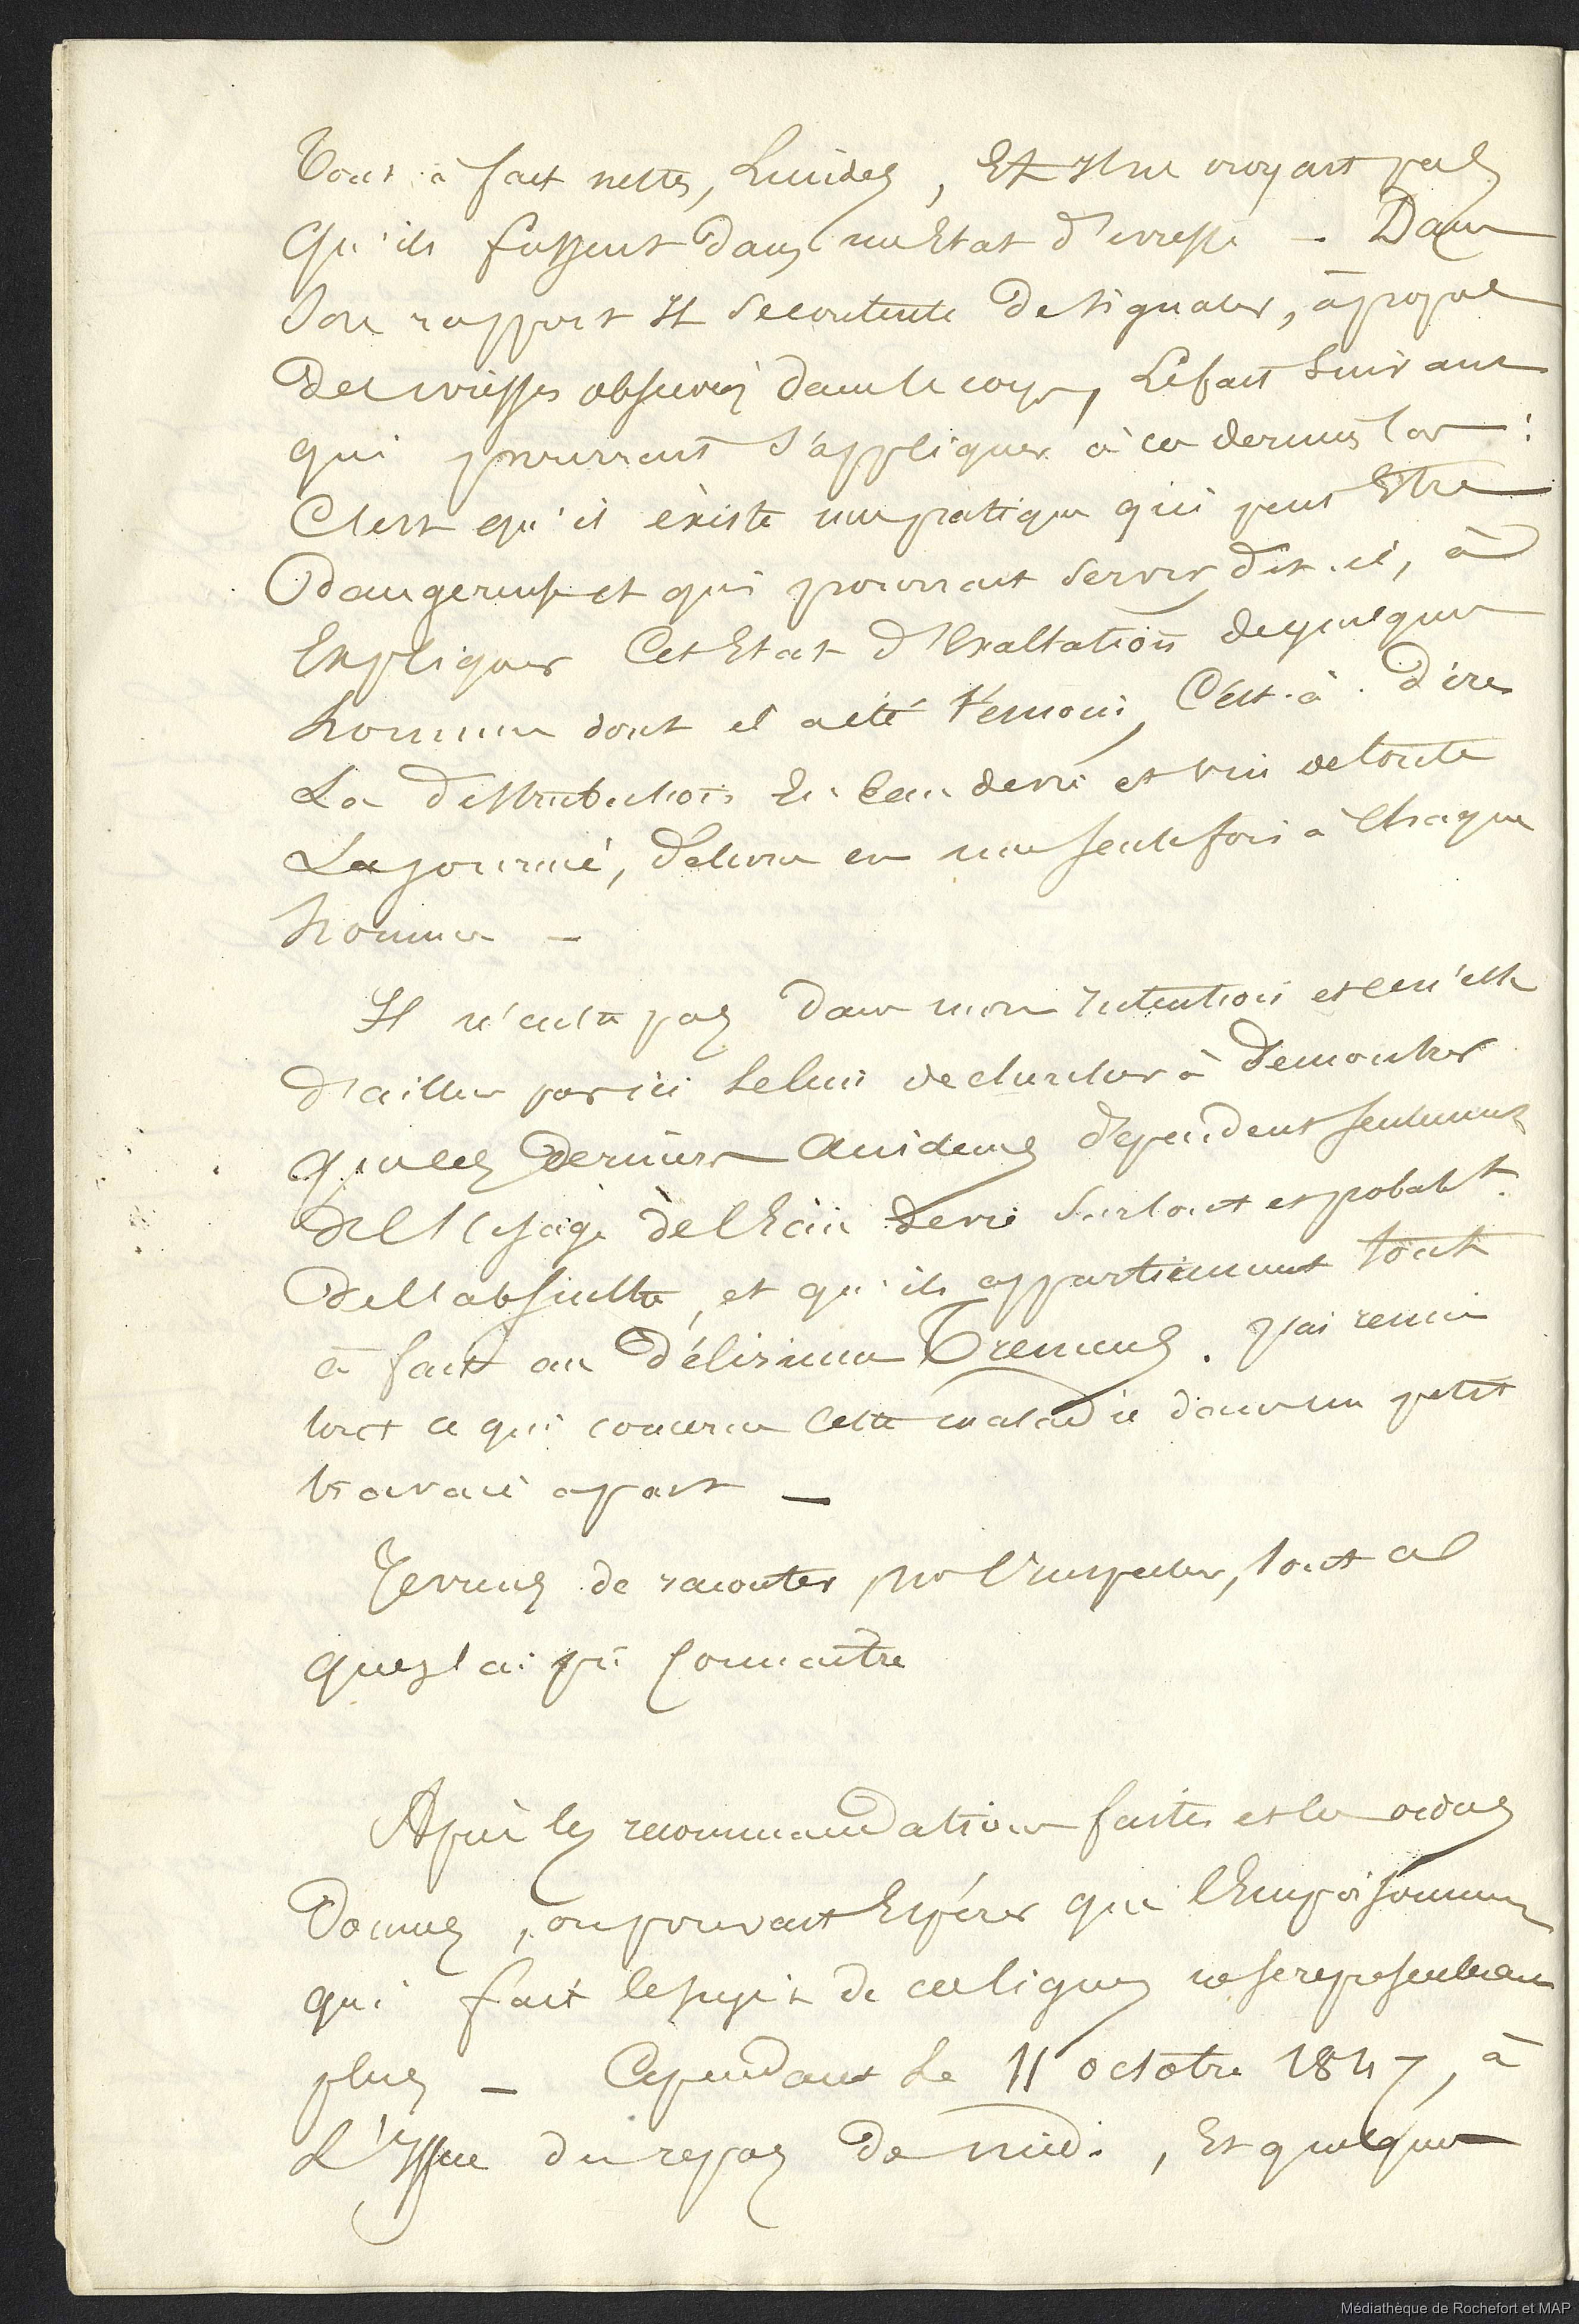 Tout à fait nettes, lucides, Et Il ne croyait pas
qu'ils fussent dans un Etat d'ivresse — Dans
son rapport Il se contente de signaler, à propos
des ivresses observées dans le corps, Le fait suivant
qui pourrait s'appliquer à ce dernier cas :
C'est qu'il existe une pratique qui peut Etre
dangereuse et qui pourrait servir, dit-il, à
Expliquer Cet Etat d'Exaltation de quelques
hommes dont il a été témoin, C'est-à-dire
La distribution En Eau de vie et vin de toute
La journée, délivrée en une seule fois à Chaque
homme —
Il n'entre pas dans mon Intention et ce n'est
d'ailleurs pas ici le lieu de chercher à Démontrer
que ces derniers accidents dépendent seulement
de l'Usage de l'Eau de vie surtout et probablt
de l'absinthe, et qu'ils appartiennent tout
à fait au Délirium Tremens. J'ai réuni
tout ce qui concerne cette maladie dans un petit
travail apart —
Je viens de raconter, Mr l'Inspecteur, tout ce
que j'ai pu Connaitre
Après les recommandations faites et les ordres
Donnés, on pouvait Espérer que l'Empoisonnement
qui fait le sujet de ces lignes ne se représenterait
plus — Cependant Le 11 octobre 1847, à
L'Issue du repas de midi, Et quelques
Médiathèque de Rochefort et MAP